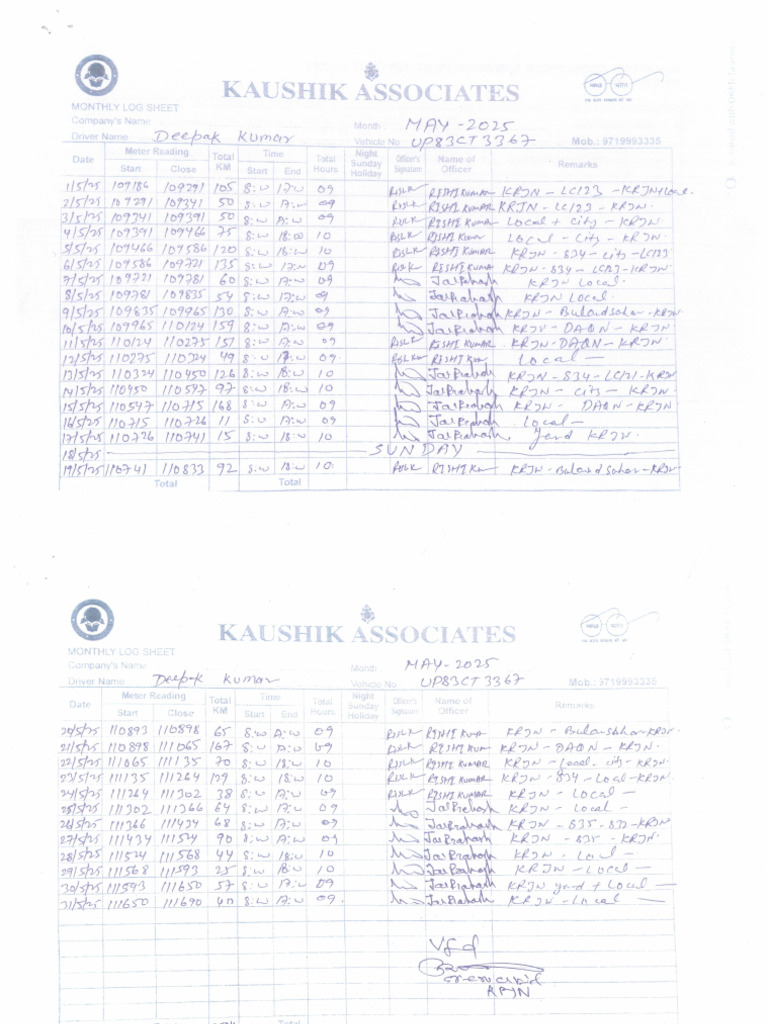 KAUSHIK ASSOCIATES
MONTHLY LOG SHEET
Company's Name
Month : MAY-2025
Driver Name Deepak Kumar Vehicle No UP83CT3367 Mob.: 9719993335
Date Meter Reading Start Close Total KM Time Start End Total Hours Night Sunday Holiday Officer's Signature Name of Officer Remarks
1/5/25 109186 109291 105 8:00 17:00 09 RISHI KUMAR KRJN - LC123 - KRJN+Local
2/5/25 109291 109341 50 8:00 17:00 09 RISHI KUMAR KRJN - LC123 - KRJN.
3/5/25 109341 109391 50 8:00 17:00 09 RISHI KUMAR Local + City - KRJN
4/5/25 109391 109466 75 8:00 18:00 10 RISHI Kumar Local - City - KRJN
5/5/25 109466 109586 120 8:00 18:00 10 RISHI KUMAR KRJN - 834 - City - LC123
6/5/25 109586 109721 135 8:00 17:00 09 RISHI KUMAR KRJN - 834 - LC123 - KRJN
7/5/25 109721 109781 60 8:00 17:00 09 Jai Prakash KRJN Local
8/5/25 109781 109835 54 8:00 17:00 09 Jai Prakash KRJN Local.
9/5/25 109835 109965 130 8:00 17:00 09 Jai Prakash KRJN - Bulandsahar - KRJN
10/5/25 109965 110124 159 8:00 17:00 09 Jai Prakash KRJN - DAQN - KRJN
11/5/25 110124 110275 151 8:00 17:00 09 RISHI KUMAR KRJN - DAQN - KRJN.
12/5/25 110275 110324 49 8:00 17:00 09. RISHI Kumar Local —
13/5/25 110324 110450 126 8:00 18:00 10 Jai Prakash KRJN - 834 - LC121 - KRJN
14/5/25 110450 110547 97 8:00 18:00 10 Jai Prakash KRJN - City - KRJN
15/5/25 110547 110715 168 8:00 17:00 09 Jai Prakash KRJN - DAQN - KRJN
16/5/25 110715 110726 11 8:00 17:00 09 Jai Prakash Local —
17/5/25 110726 110741 15 8:00 18:00 10 Jai Prakash yard KRJN.
18/5/25 — SUNDAY —
19/5/25 110741 110833 92 8:00 18:00 10. RISHI Kumar KRJN - Buland Sahar - KRJN
Total Total
KAUSHIK ASSOCIATES
MONTHLY LOG SHEET
Company's Name
Month : MAY-2025
Driver Name Deepak Kumar Vehicle No UP83CT3367 Mob.: 9719993335
Date Meter Reading Start Close Total KM Time Start End Total Hours Night Sunday Holiday Officer's Signature Name of Officer Remarks
20/5/25 110893 110898 65 8:00 17:00 09 RISHI Kumar KRJN - Bulandsahar - KRJN
21/5/25 110898 111065 167 8:00 17:00 09 RISHI Kumar KRJN - DAQN - KRJN.
22/5/25 111065 111135 70 8:00 18:00 10 RISHI KUMAR KRJN - Local. City - KRJN
23/5/25 111135 111264 129 8:00 18:00 10 RISHI KUMAR KRJN - 834 - Local - KRJN.
24/5/25 111264 111302 38 8:00 17:00 09 RISHI KUMAR KRJN - Local —
25/5/25 111302 111366 64 8:00 17:00 09 Jai Prakash KRJN - Local -
26/5/25 111366 111434 68 8:00 17:00 09 Jai Prakash KRJN - 835 - 832 - KRJN
27/5/25 111434 111524 90 8:00 17:00 09 Jai Prakash KRJN - 835 - KRJN.
28/5/25 111524 111568 44 8:00 18:00 10 Jai Prakash KRJN. Local —
29/5/25 111568 111593 25 8:00 18:00 10 Jai Prakash KRJN - Local —
30/5/25 111593 111650 57 8:00 17:00 09 Jai Prakash KRJN yard + Local —
31/5/25 111650 111690 40 8:00 17:00 09. Jai Prakash KRJN - Local —
Vfd
KRJN